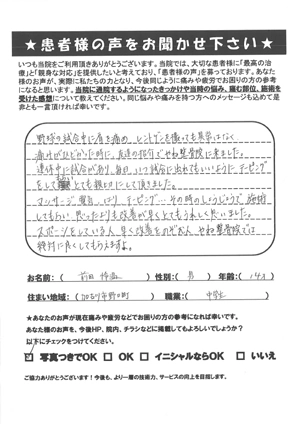 ★患者様の声をお聞かせ下さい★
いつも当院をご利用頂きありがとうございます。当院では、大切な患者様に「最高の治
療」と「親身な対応」を提供したいと考えており、「患者様の声」を募っております。あなた
様のお声が、実際に私たちの力となり、今後同じように痛みや疲労でお困りの方の参考
になると思います。当院に通院するようになったきっかけや当時の悩み、痛む部位、施術を
受けた感想について教えてください。同じ悩みや痛みを持つ方へのメッセージも込めて是
非とも一言頂ければ幸いです。
野球の試合中に肩を痛め、レントゲンを撮っても異常はなく
痛みがひどかった時に、友達の紹介でやわ整骨院に来ました。
連休中に試合があり、毎日、いつ試合に出てもいいようにテーピング
をして とても親切にして頂きました。
マッサージ、電気、はり、テーピング…その時のしょうじょうで施術
してもらい、思ったよりも改善が早くとてもうれしく思いました。
スポーツをしている人、早く改善をのぞむ人、やわ整骨院では
絶対に良くしてもらえますよ。
お名前：（ 前田 ）性別：（ 男 ）年齢：（ 14才 ）
住まい地域：（ 加古川市野口町 ）職業：（ 中学生 ）
★あなたのお声が現在痛みや疲労などでお困りの方の参考になれば幸いです。
あなた様のお声を、今後HP、院内、チラシなどに掲載してもよろしいでしょうか？
以下にチェックをつけてください。
☑ 写真つきでOK □ OK □ イニシャルならOK □ いいえ
ご協力ありがとうございます！今後も、より一層の技術力、サービスの向上を目指します。